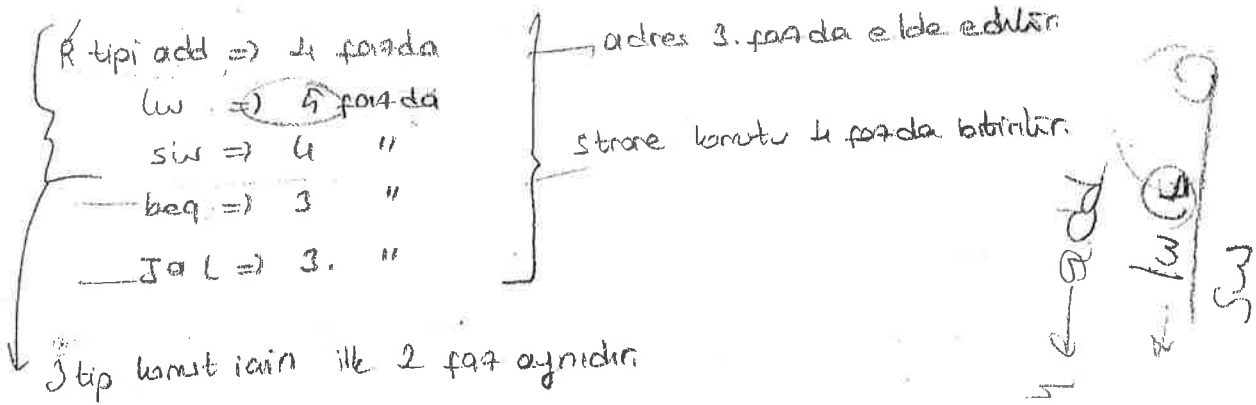 R tipi add => 4 fazda
lw => 5 fazda
sw => 4 "
beq => 3 "
Jal => 3. "
adres 3. fazda elde edilir.
strore komutu 4 fazda bitirilir.
3 tip komut için ilk 2 faz aynıdır.
lw
sw